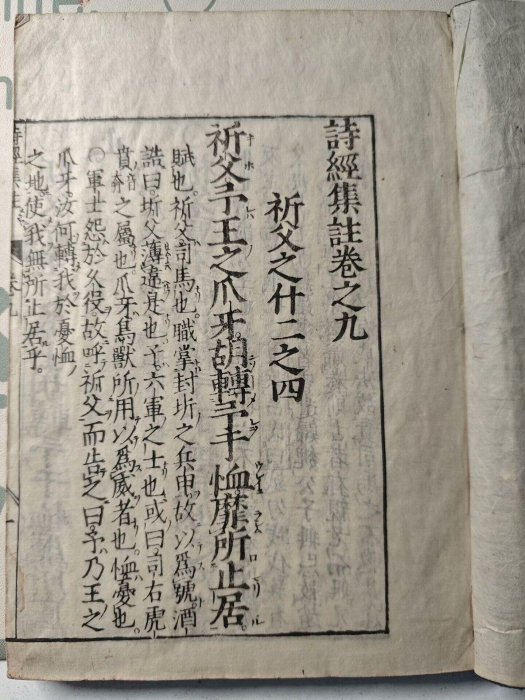 詩經集註卷之九
祈父之什二之四
祈父予王之爪牙胡轉予于恤靡所止居
賦也祈父司馬也職掌封圻之兵甲故以為號酒
誥曰圻父薄違是也予六軍之士也或曰司右虎
賁之屬也爪牙鳥獸所用以為威者也恤憂也
○軍士怨於久役故呼祈父而告之曰予乃王之
爪牙汝何轉我於憂恤
之地使我無所止居乎
詩經集註